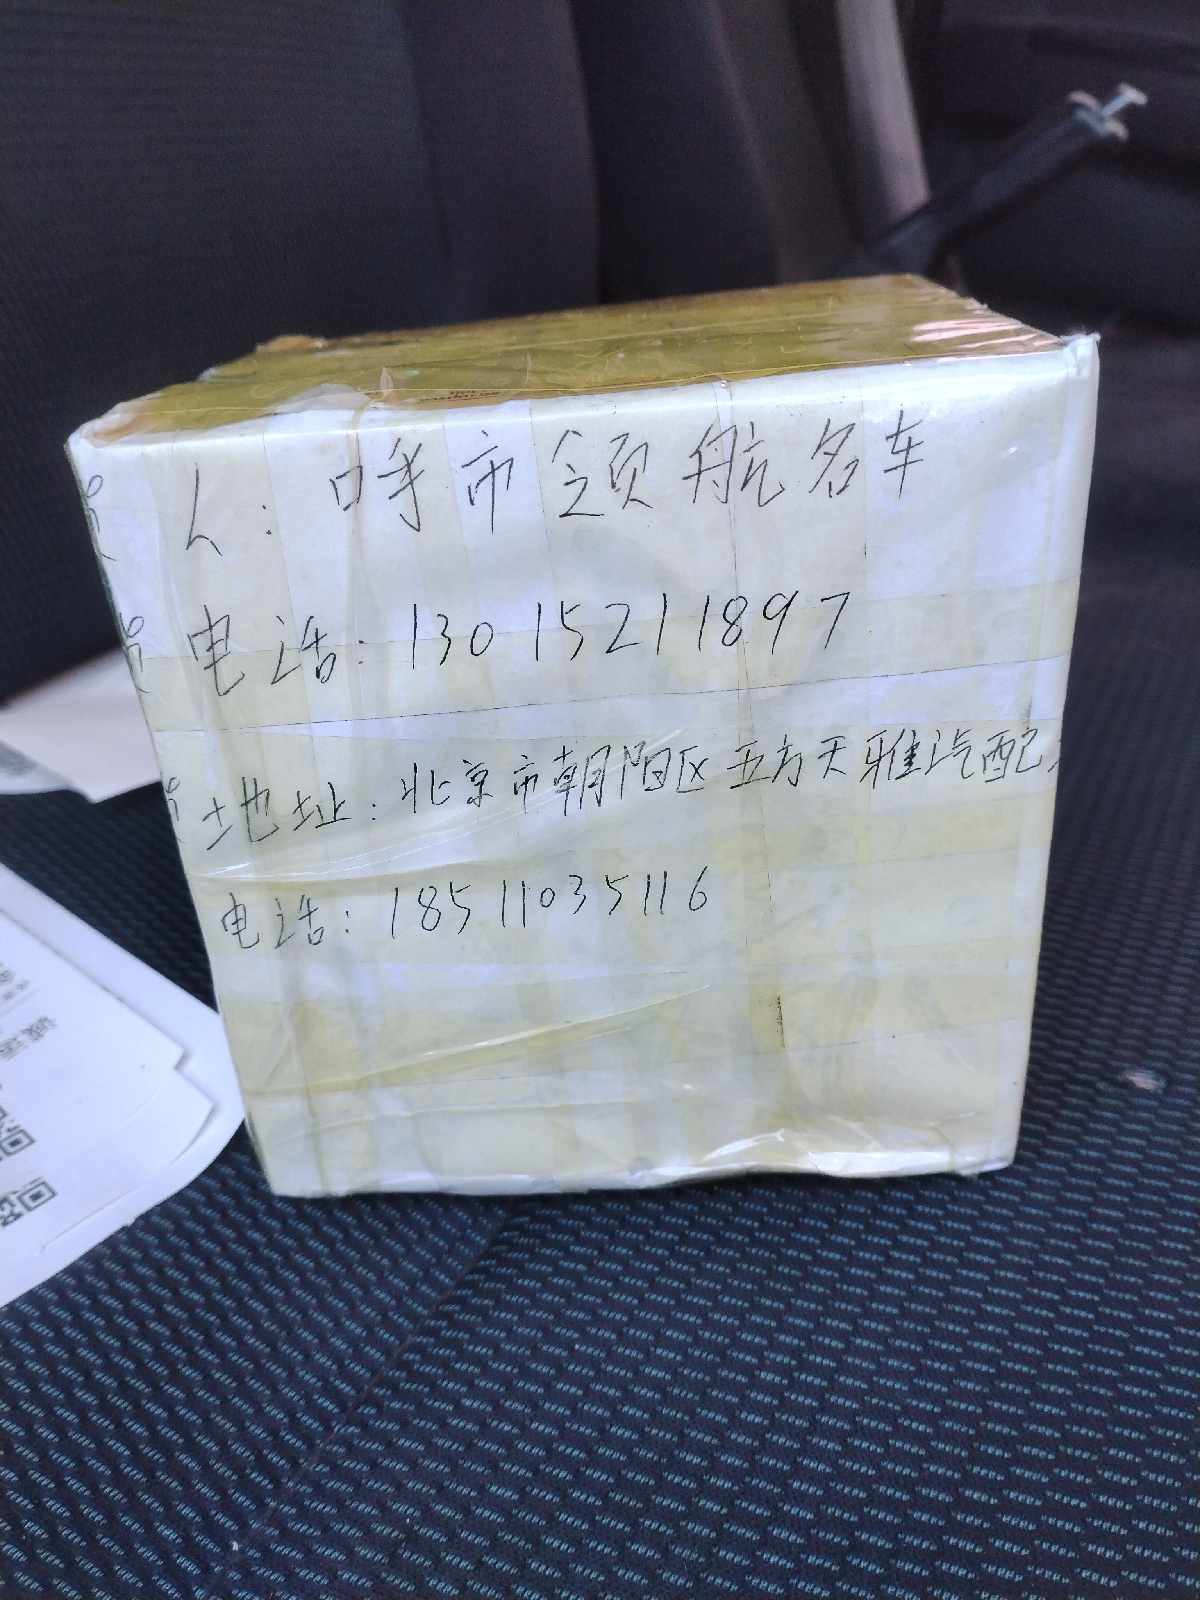 人：呼市领航名车
电话：13015211897
地址：北京市朝阳区五方天雅汽配
电话：18511035116